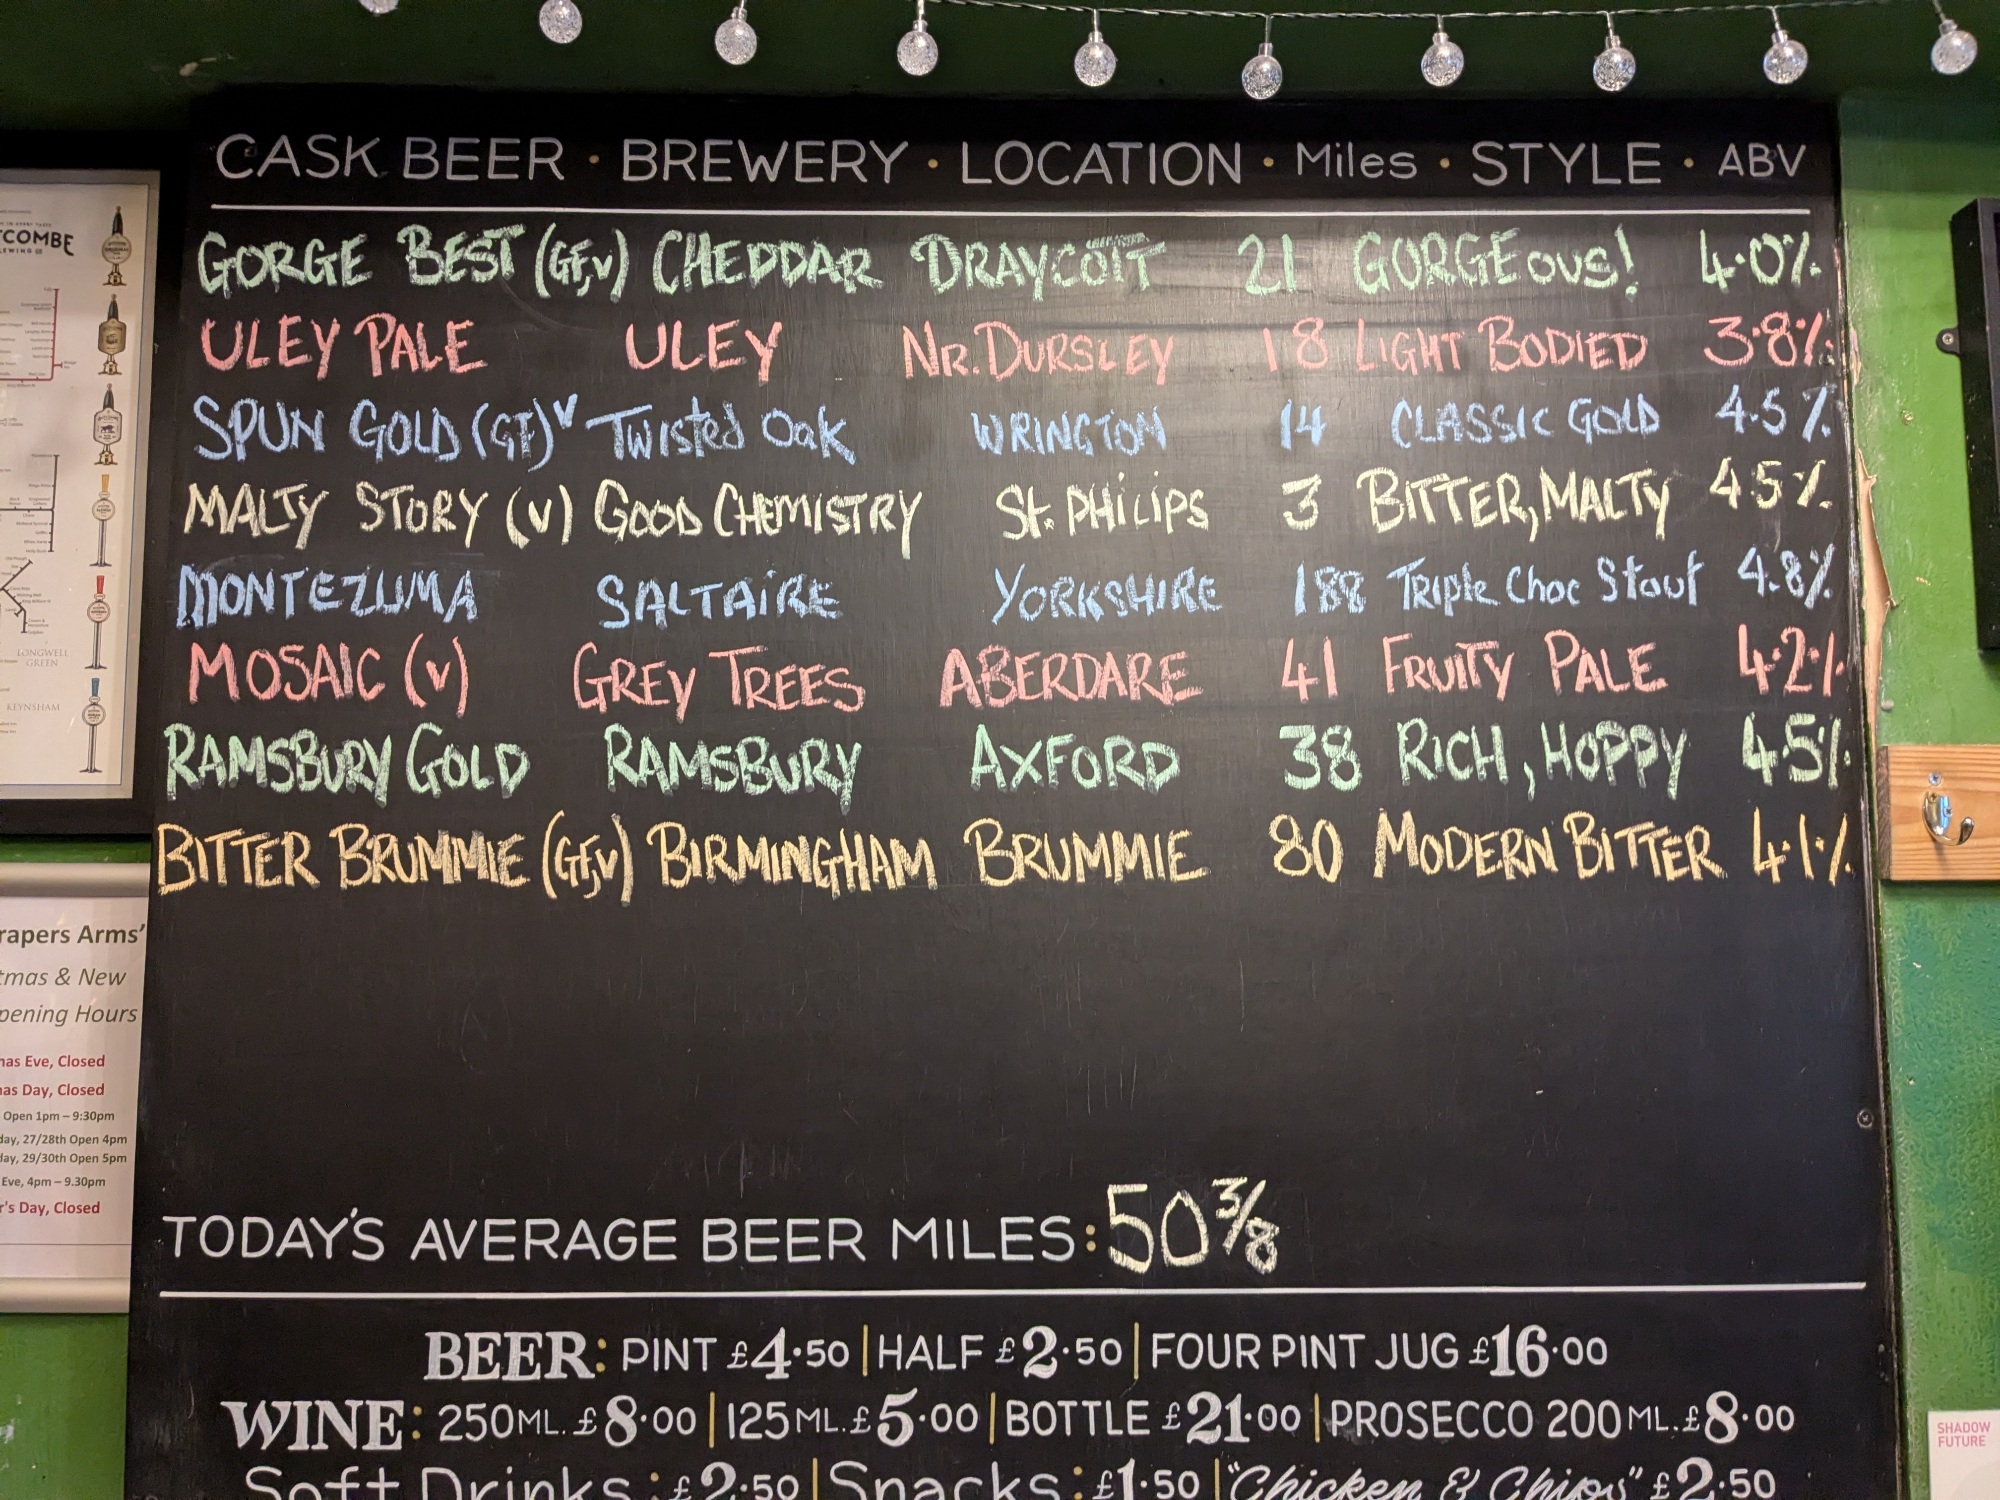 CASK BEER · BREWERY · LOCATION · Miles · STYLE · ABV
GORGE BEST (GF,V) CHEDDAR DRAYCOTT 21 GORGEOUS! 4.0%
ULEY PALE ULEY NR. DURSLEY 18 LIGHT BODIED 3.8%
SPUN GOLD (GF) V Twisted Oak WRINGTON 14 CLASSIC GOLD 4.5%
MALTY STORY (V) GOOD CHEMISTRY St. PHILIPS 3 BITTER, MALTY 4.5%
MONTEZUMA SALTAIRE YORKSHIRE 188 Triple Choc Stout 4.8%
MOSAIC (V) GREY TREES ABERDARE 41 FRUITY PALE 4.2%
RAMSBURY GOLD RAMSBURY AXFORD 38 RICH, HOPPY 4.5%
BITTER BRUMMIE (GF,V) BIRMINGHAM BRUMMIE 80 MODERN BITTER 4.1%
TODAY'S AVERAGE BEER MILES: 50 3/8
BEER: PINT £4.50 | HALF £2.50 | FOUR PINT JUG £16.00
WINE: 250ML. £8.00 | 125ML. £5.00 | BOTTLE £21.00 | PROSECCO 200ML. £8.00
Soft Drinks: £2.50 | Snacks: £1.50 | "Chicken & Chips" £2.50
TCOMBE
LONGWELL
GREEN
KEYNSHAM
rapers Arms'
tmas & New
pening Hours
mas Eve, Closed
mas Day, Closed
Open 1pm – 9:30pm
day, 27/28th Open 4pm
day, 29/30th Open 5pm
Eve, 4pm – 9.30pm
r's Day, Closed
SHADOW
FUTURE